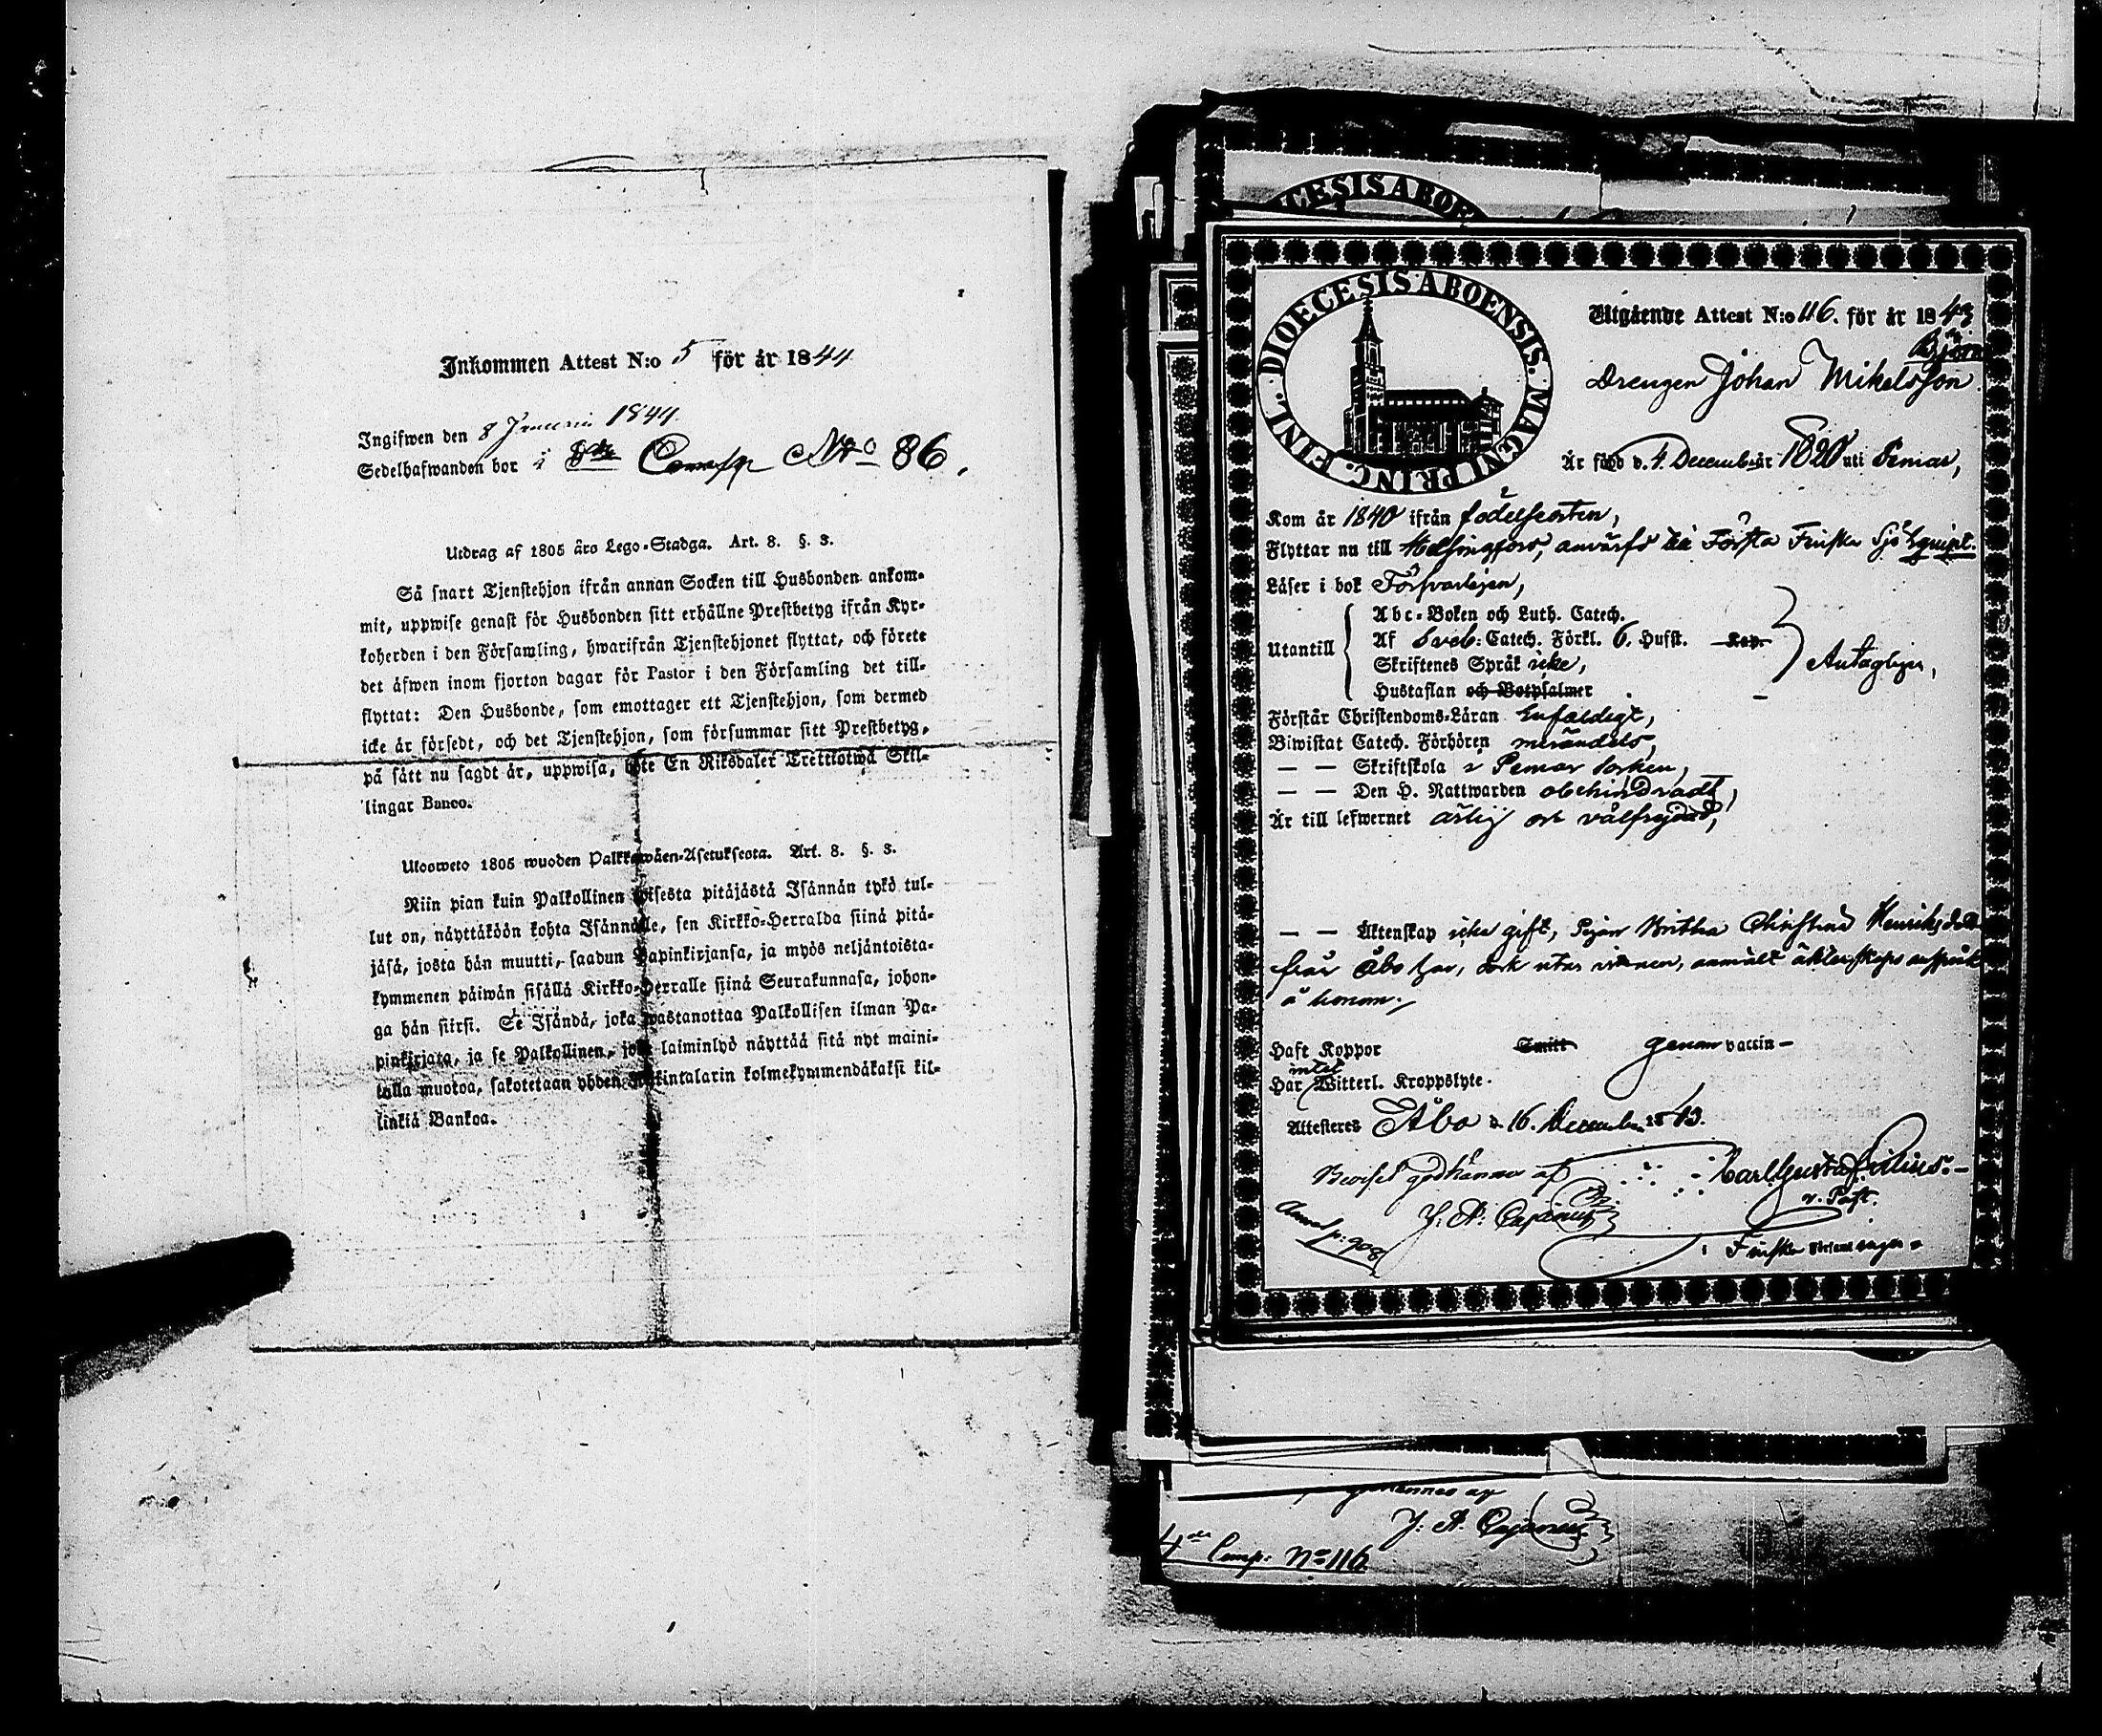 Inkommen Attest N:o 5 för år 1844
Ingifwen den 8 Januarii 1844.
Sedelhafwanden bor i Comp N:o 86.
Utdrag af 1805 års Lego-Stadga. Art. 8. §. 3.
Så snart Tjenstehjon ifrån annan Socken till Husbonden ankom-
mit, uppwise genast för Husbonden sitt erhållne Prestbetyg ifrån Kyr-
koherden i den Församling, hwarifrån Tjenstehjonet flyttat, och förete
det äfwen inom fjorton dagar för Pastor i den Församling det till-
flyttat: Den Husbonde, som emottager ett Tjenstehjon, som dermed
icke är försedt, och det Tjenstehjon, som försummar sitt Prestbetyg,
på sätt nu sagdt är, uppwisa, böte En Riksdaler Trettiotwå Skil-
lingar Banco.
Uloosweto 1805 wuoden Palkkawäen-Asetuksesta. Art. 8. §. 3.
Niin pian kuin Palkollinen toisesta pitäjästä Isännän tykö tul-
lut on, näyttäköön kohta Isännälle, sen Kirkko-Herralda siinä pitä-
jäsä, josta hän muutti, saadun Papinkirjansa, ja myös neljäntoista-
kymmenen päiwän sisällä Kirkko-Herralle siinä Seurakunnasa, johon-
ga hän siirsi. Se Isändä, joka wastanottaa Palkollisen ilman Pa-
pinkirjata, ja se Palkollinen, joka laiminlyö näyttää sitä nyt maini-
tulla muotoa, sakotetaan yhden Riikintalarin kolmekymmendäkaksi kil-
linkiä Bankoa.
DIOECESIS ABOENSIS. MAGNI PRINC. FINL.
Utgående Attest N:o 116. för år 1843
Björn
Drengen Johan Mikelsson
Är född d. 4 December år 1820 uti Pemar,
Kom år 1840 ifrån födelseorten,
Flyttar nu till Helsingfors, anvärfd till Första Finska Sjö Equipt.
Läser i bok Försvarligen,
Utantill
Abc-Boken och Luth. Catech.
Af Sveb: Catech. Förkl. 6. Hufst. Kap.
Skriftenes Språk icke,
Hustaflan och Botpsalmer
Antagligen,
Förstår Christendoms-Läran Enfaldigt,
Biwistat Catech. Förhören merändels,
— — Skriftskola i Pemar socken,
— — Den H. Nattwarden obehindradt,
Är till lefwernet ärlig och välfrejdad,
— — Äktenskap icke gift, Pigan Britha Christina Henriksdotter
från Åbo har, dock utan vittnen, anmält äktenskaps anspråk
å honom.
Haft Koppor Smitt genom vaccin-
intet
Har Witterl. Kroppslyte.
Attesteres Åbo d. 16. December 1843.
Beviset godkännes af Carl Gustaf
v. Past.
J. A. Cajanus
Anno p: 908
i Finska Församlingen
DIOECESIS ABOENSIS
godkännes af
J. A. Cajanus
4de Comp: No 116